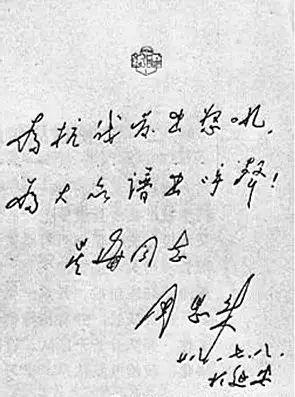 為抗战发出怒吼，
為大众谱出呼聲！
星海同志
周恩来
七.八.
于延安